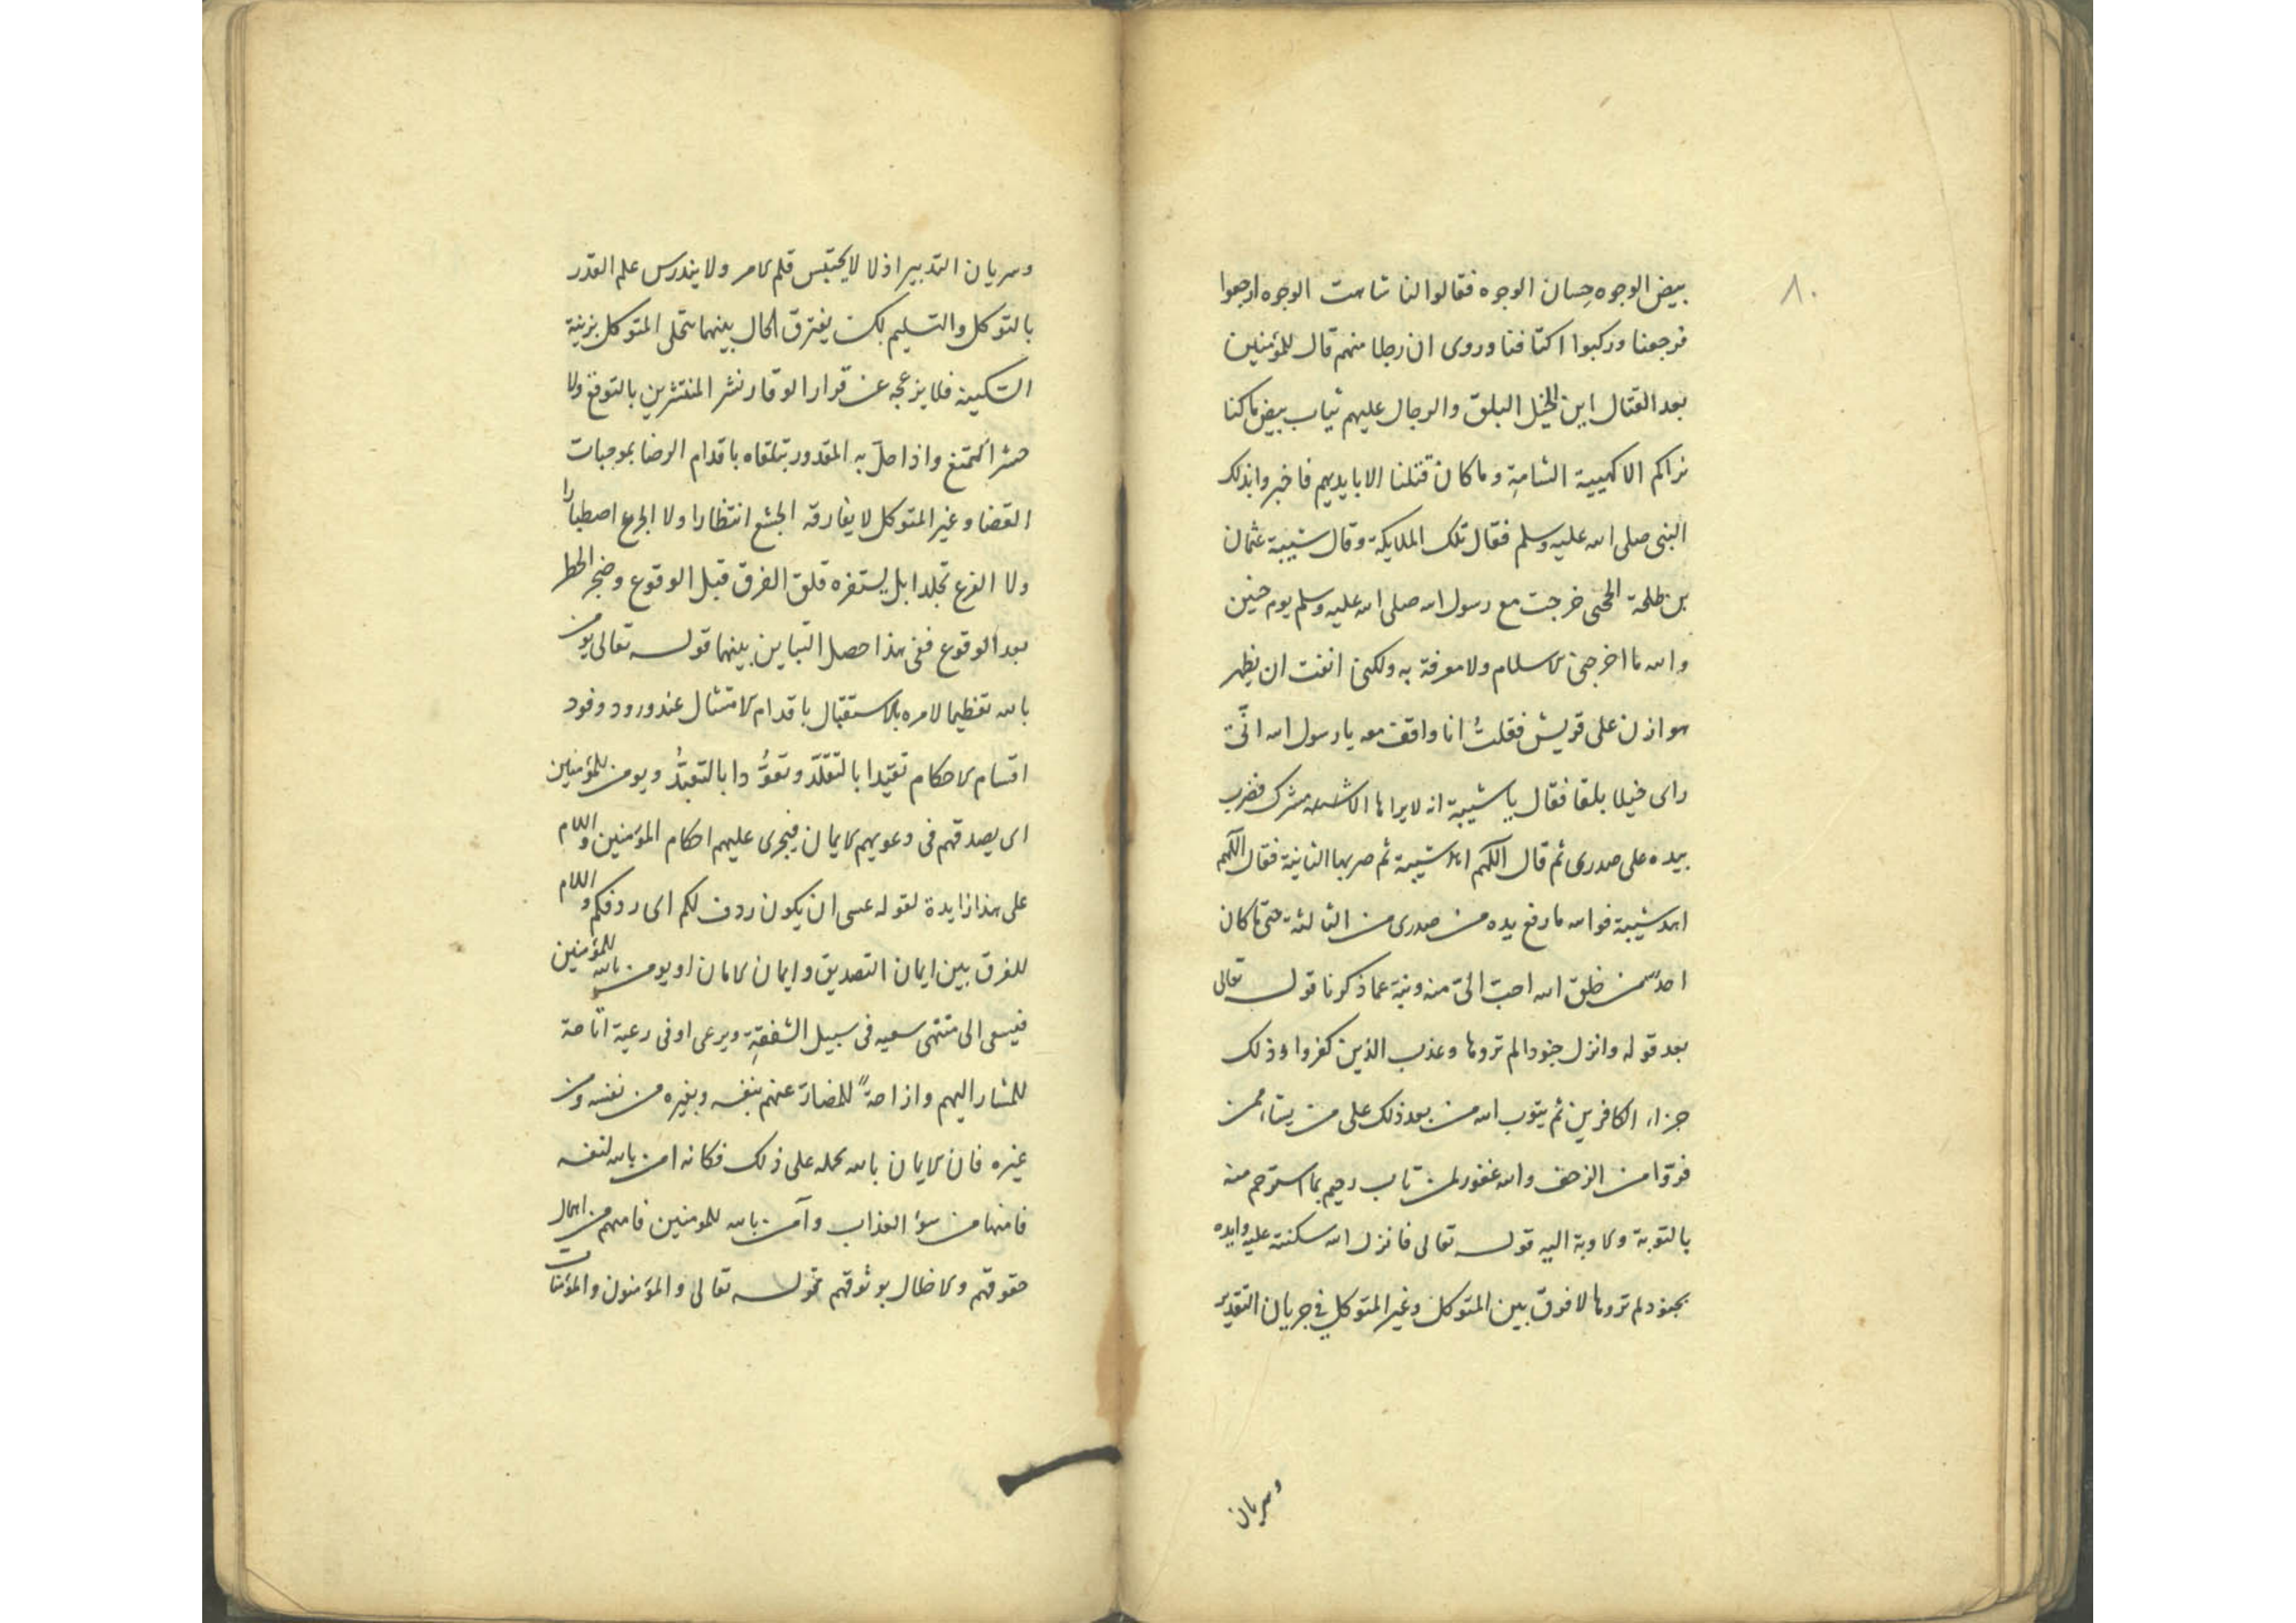 ٨٠
بيض الوجوه حِسان الوجوه فقالوا لنا شاهت الوجوه ارجعوا
فرجعنا وركبوا اكتافنا وروى ان رجلا منهم قال للمؤمنين
بعد القتال اين الخيل البلق والرجال عليهم ثياب بيض ما كنا
نراكم الا كهيية الشامة وما كان قتلنا الا بايديهم فاخبروا بذلك
النبى صلى الله عليه وسلم فقال تلك الملايكة وقال شيبة عثمان
بن طلحة الحجبى خرجت مع رسول الله صلى الله عليه وسلم يوم حنين
والله ما اخرجنى الاسلام ولا معرفة به ولكنى انفت ان يظهر
هوازن على قريش فقلتُ انا واقف معه يا رسول الله انّى
راى خيلا بلقا فقال يا شيبة انه لا يراها الا مشرك فضرب
بيده على صدرى ثم قال اللهم اهد شيبة ثم ضربها الثانية فقال اللهم
اهد شيبة فوالله ما رفع يده من صدرى من الثالثة حتى ما كان
احد من خلق الله احبّ الىّ منه ونية عما ذكرنا قوله تعالى
بعد قوله وانزل جنودا لم تروها وعذب الذين كفروا وذلك
جزاء الكافرين ثم يتوب الله من بعد ذلك على من يشاء ممن
فرّوا من الزحف والله غفور لمن تاب رحيم بما استرحم منه
بالتوبة والاوبة اليه قوله تعالى فانزل الله سكنته عليه وايده
بجنود لم تروها لا فرق بين المتوكل وغير المتوكل فى جريان التقدير
وسريان
وسريان التدبير اذ لا لا يحتبس قلم الامر ولا يندرس علم القدر
بالتوكل والتسليم لكن يفترق الحال بينهما تتحلى المتوكل بزينة
السكينه فلا يزعجه عن قرار الوقار نشر المنتشرين بالتوقع ولا
حشر التمتع واذا حلّ به المقدور يتلقاه باقدام الرضا بموجبات
القضا وغير المتوكل لا يفارقه الجشع انتظارا ولا الجزع اصطبارا
ولا الفزع تجلدا بل يستفزه قلق الفرق قبل الوقوع وضجر الخطر
بعد الوقوع ففى هذا حصل التباين بينهما قوله تعالى يومن
بالله تعظيما لامره بالاستقبال باقدام الامتثال عند ورود وفود
اقسام الاحكام تقيّدا بالتقلّد وتعوُّدا بالتعبُّد ويومن للمؤمنين
اى يصدقهم فى دعويهم الايمان فيجرى عليهم احكام المؤمنين واللام
على هذا زايدة لقوله عسى ان يكون ردف لكم اى ردفكم واللام
للفرق بين ايمان التصديق وايمان الامان او يومن بالله للمؤمنين
فيسعى الى منتهى سعيه فى سبيل الشفقة ويرعى اوفى رعية اتاحة
للمشار اليهم وازاحةً للمضارّ عنهم بنفسه وبغيره من نفسه ومن
غيره فان الايمان بالله يحمله على ذلك فكانه امن بالله لنفسه
فامنها من سوء العذاب وآمن بالله للمومنين فامنهم من اهمال
حقوقهم والاخلال بوثوقهم نحوله تعالى والمؤمنون والمؤمنات